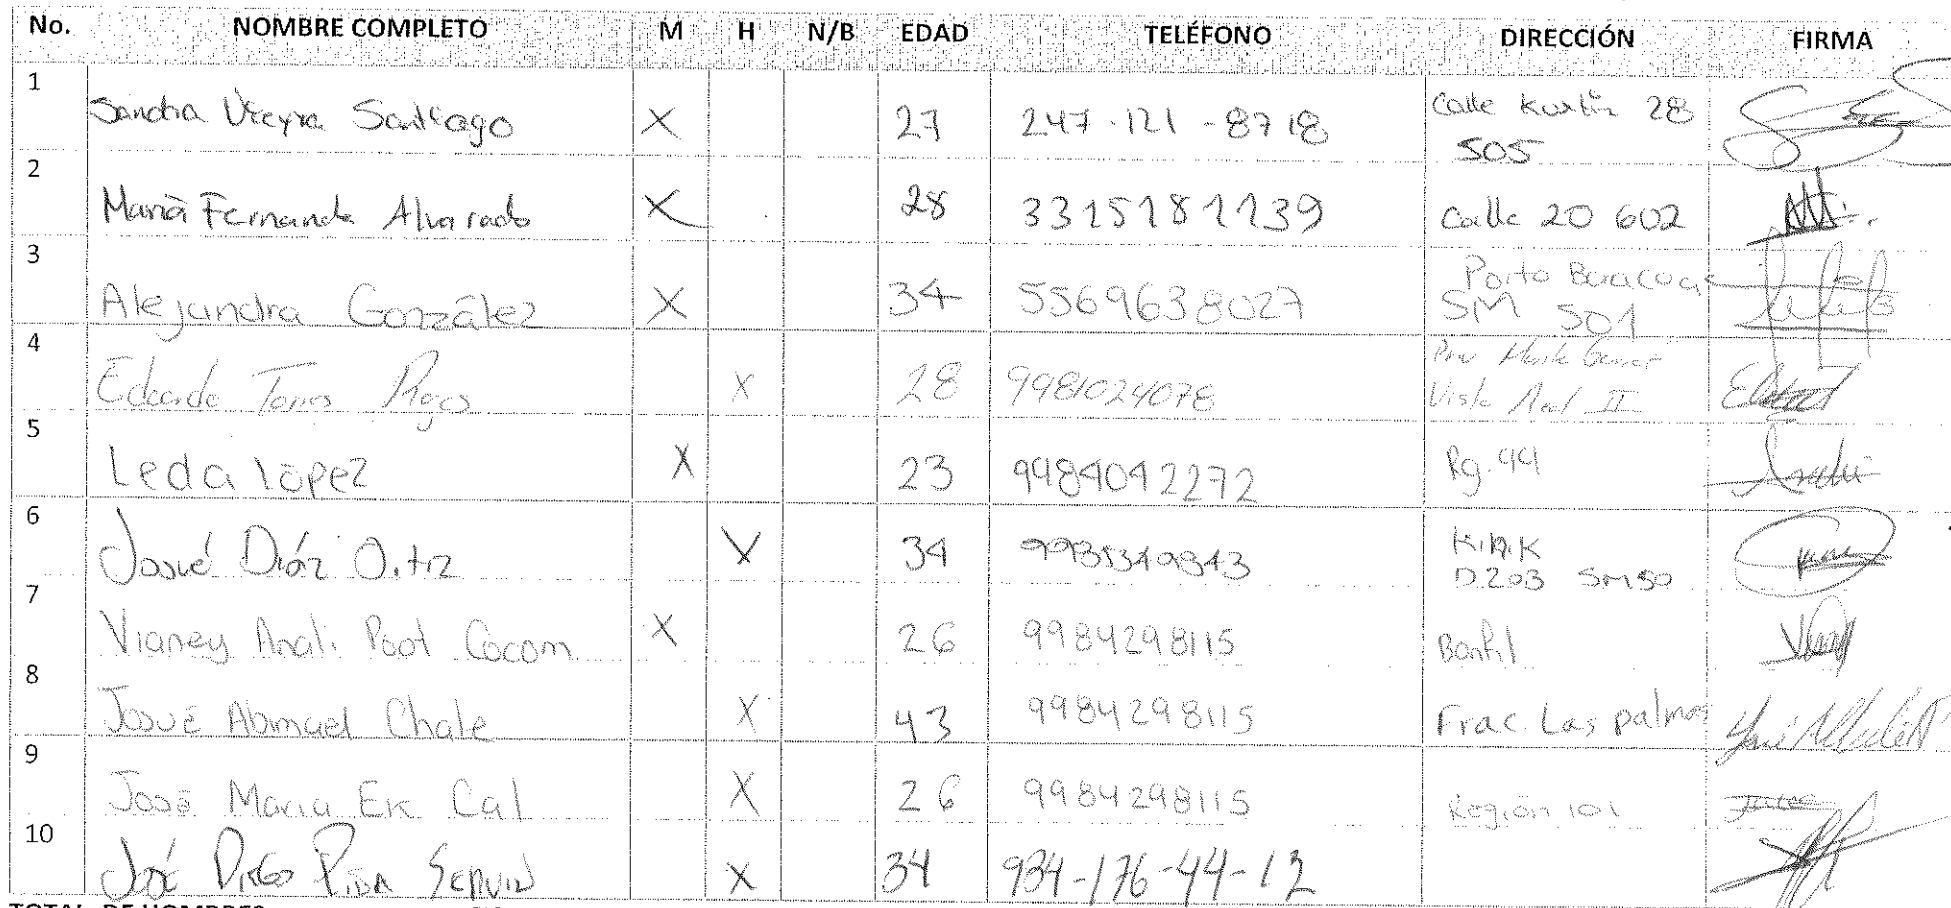 No. NOMBRE COMPLETO M H N/B EDAD TELÉFONO DIRECCIÓN FIRMA
1 Sandra Vieyra Santiago X 27 247-121-8718 Calle Kustin 28
505
2 María Fernanda Alvarado X 28 3315181139 Calle 20 602
3 Alejandra González X 34 5569638027 Porto Baracoa
SM 501
4 Eduardo Torres X 28 9981024078
Vista Real II
5 Leda López X 23 9984042272 Rg. 99
6 Josué Díaz Ortiz X 34 9935349843 K.I.K
D.203 SM50
7 Vianey Anali Poot Cocom X 26 9984298115 Bonfil
8 Josué Abimael Chale X 43 9984298115 Frac. Las palmas
9 José Maria Ek Cal X 26 9984298115 Región 101
10 José Diego Piña Servin X 34 984-176-44-12